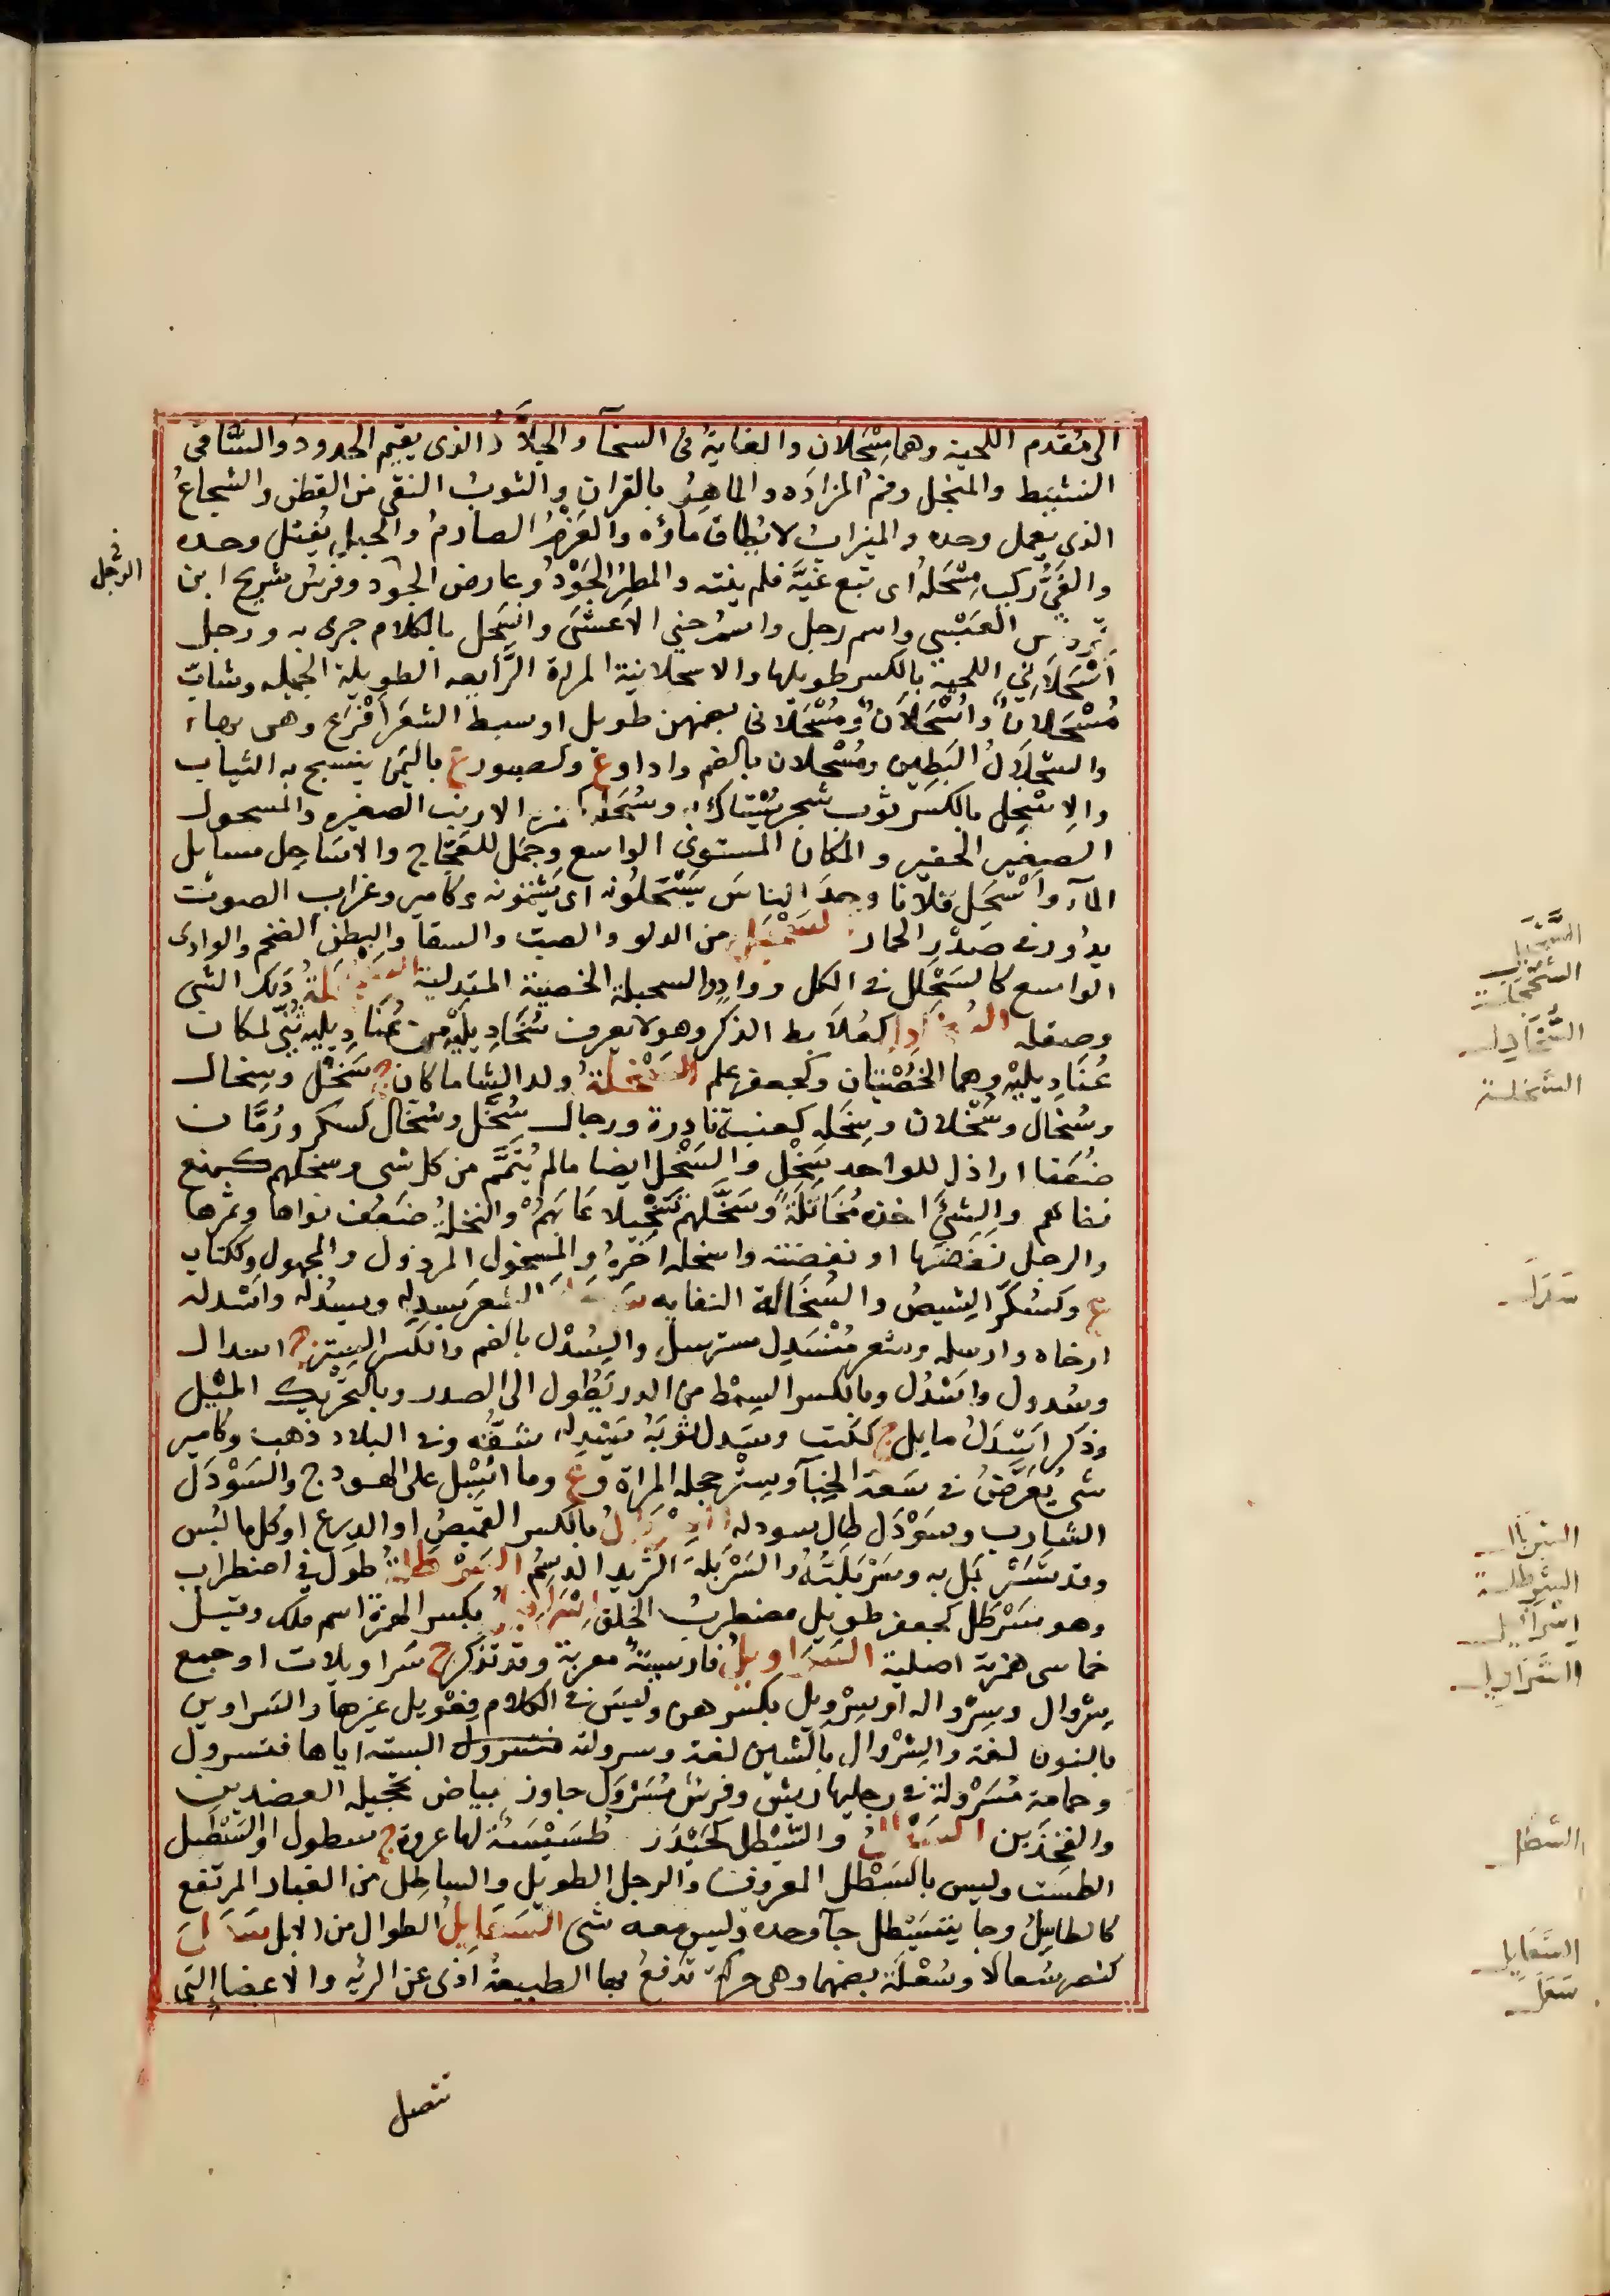 الى مُقَدم اللحية وهما مِسْحَلانِ والغايةُ فى السخآ والجلاَّدُ الذى يقيم الحدود والسَّاقى
النشيط والمنخل وفم المزادَه والماهِرُ بالقران والثوبُ النقى من القطن والشجاعُ
الذى يعمل وحده والميزابُ لا يُطاق ماؤه والعَزْمُ الصادمُ والحبل يُفتل وحده
والغَىُّ ركب مِسْحَلَهُ اى تبع غيَّه فلم ينته والمطرُ الجَوْدُ وعارض الرجل وفرس شريح ابن
العَبْسى واسم رجل واسمُ جنى الاَعشَى وانسَحل بالكلام جرى به ورجل
اُسْحَلانى اللحية بالكسر طويلها والاسحلانية المراة الرَّايعه الطويلة الجميله وشابٌّ
مُسْحَلانٌ واُسْحَلانٌ ومُسْحَلانى بضمهن طويل او سبط الشعَر اَفْرَع وهى بهاء
والسَحْلالُ البَطين ومُسْحلان بالضم واد اوع وكصبور ع باليمن ينسج به الثياب
والاِسْحِل بالكسر ثوب شجر يُسْتَاك به وسُحَلة الارنب الصغيره والمسحول
الصغير الحقير والمكان المستوى الواسع وجمل للعجّاج والاسَاحِل مسايل
المآء واَسْحَل فلانا وجد الناسَ يَسْحَلُونه اى يَشْتمونه وكامير وغراب الصوت
يدُور فى صَدْرِ الحمار من الدلو والصب والسقا والبطن الضخم والوادى
الواسع كالسَحْلل فى الكل وواد والسحبلة الخصية المتدلية دَلك الشى
وصقله كعُلابط الذكر وهو لا يعرف سُخَادِيلَيْه من عُنَادِيلَيه ثُنّى لمكان
عُنَادِيلَيْه وهما الخُصْيَتان وكجعفر علم السَّخْلةُ ولد الشاة ما كان ج سَخْل وسِخال
وسُخال وسُخْلان وسِخَله كعنبة نادرة ورجال سُخَّل وسُخَّال كسكر ورُمَّان
ضُعَفا اراذل للواحد سَخْل والسَخْل ايضا مالم يُتَمَّم من كل شى وسخلهم كمنع
نفاهم والشئَ اخذه مُخَاتَلَةً وسَخَّلهم تسْخِيلا عَابَهُمْ والنخلةُ ضعُف نواها وثمرها
والرجل نفَضَها او نفضته واسخله اخرهُ والمسخول المرذول والمجهول وككتاب
ع وكسُكّر الشِيصُ والسُخَالة النفايه الشعَر يَسدِله ويسدُله واَسْدله
ارخاه وارسله وشعر مُنْسَدِل مسترسل والسُدْل بالضم والكسر الستر ج اسدال
وسُدول واسْدُل وبالكسر السمْط من الدر يَطُول الى الصدر وبالتحرّيك الميْل
وذكر اَسْدَل مايل ج ككتب وسَدل ثوبَه يَسْدِله شقَّه وفى البلاد ذهب وكامير
شى يُعَرَّضُ فى سَعة الخِبَآ وسِتْر حجله المراة وع وما اُسْبِل على الهودج والسَوْدَل
الشارب وسَوْدَل طال سودله بالكسر القميصُ او الدِرع او كل ما لُبس
وقد تَسَرْبَل به وسَرْبَلْتُهُ والسَرْبَلة الثريد الدسِمُ طول فى اضطراب
وهو سَرْطَل كجعفر طويل مضطربُ الخلق اِسْرَافِيلُ بكسر الهمزة اسم ملك وقيل
خماسى همزته اصلية السَّرَاوِيلُ فارسيَّة معربة وقد تذكر ج سَراويلات او جمع
سِرْوال وسِرْواله او سِرْوِيل بكسرهن وليسَ فى الكلام فِعْويل غيرها والسَراوين
بالنون لغة والشِرْوال بالشين لغة وسرولته البسته اياها فتسرول
وحمامة مُسَرْوَلة فى رجليها ريش وفرسٌ مُسَرْوَل جاوز بياض تحجيله العضدين
والفخذين والسَّيْطل كحَيْدَر طُسَيْسَة لها عروة ج سطول او السَيْطَل
الطست وليس بالسَطْل المعروف والرجل الطويل والساطِل من الغبار المرتفع
كالطاسِلُ وجا يتَسَيْطل جآ وحده وليس معه شى السَعَابِيلُ الطوال من الابل سَعَلَ
كنصر سُعالا وسُعْلَة بضمهما وهى حركة تدْفَعُ بها الطبيعةُ اذى عن الريه والاعضا التى
تتصل
الرجل
السَّحْبَل
السَّخَادِل
السَّخلة
سَدَل
السِّرْبال
السَّرطلة
اِسْرَافيل
السَّرَاويل
السَّطل
السَّعَابيل
سَعَل